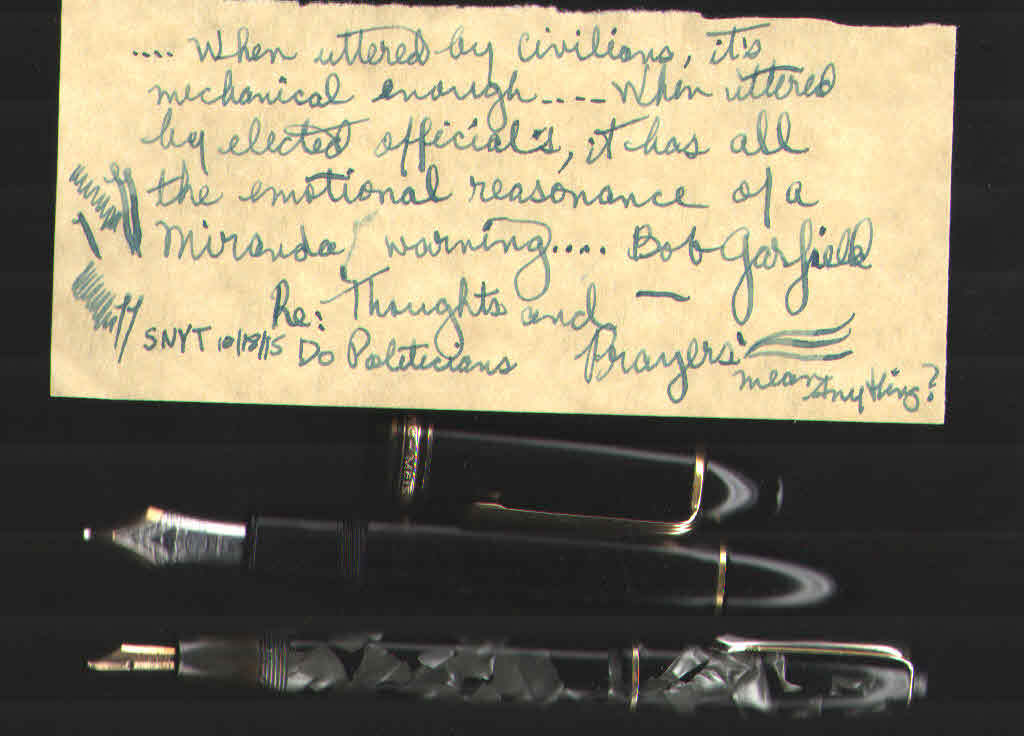 .... When uttered by civilians, it's
mechanical enough.... When uttered
by elected official's, it has all
the emotional reasonance of a
Miranda warning.... Bob Garfield
Re: Thoughts and Prayers:
SNYT 10/18/15 Do Politicians mean anything?